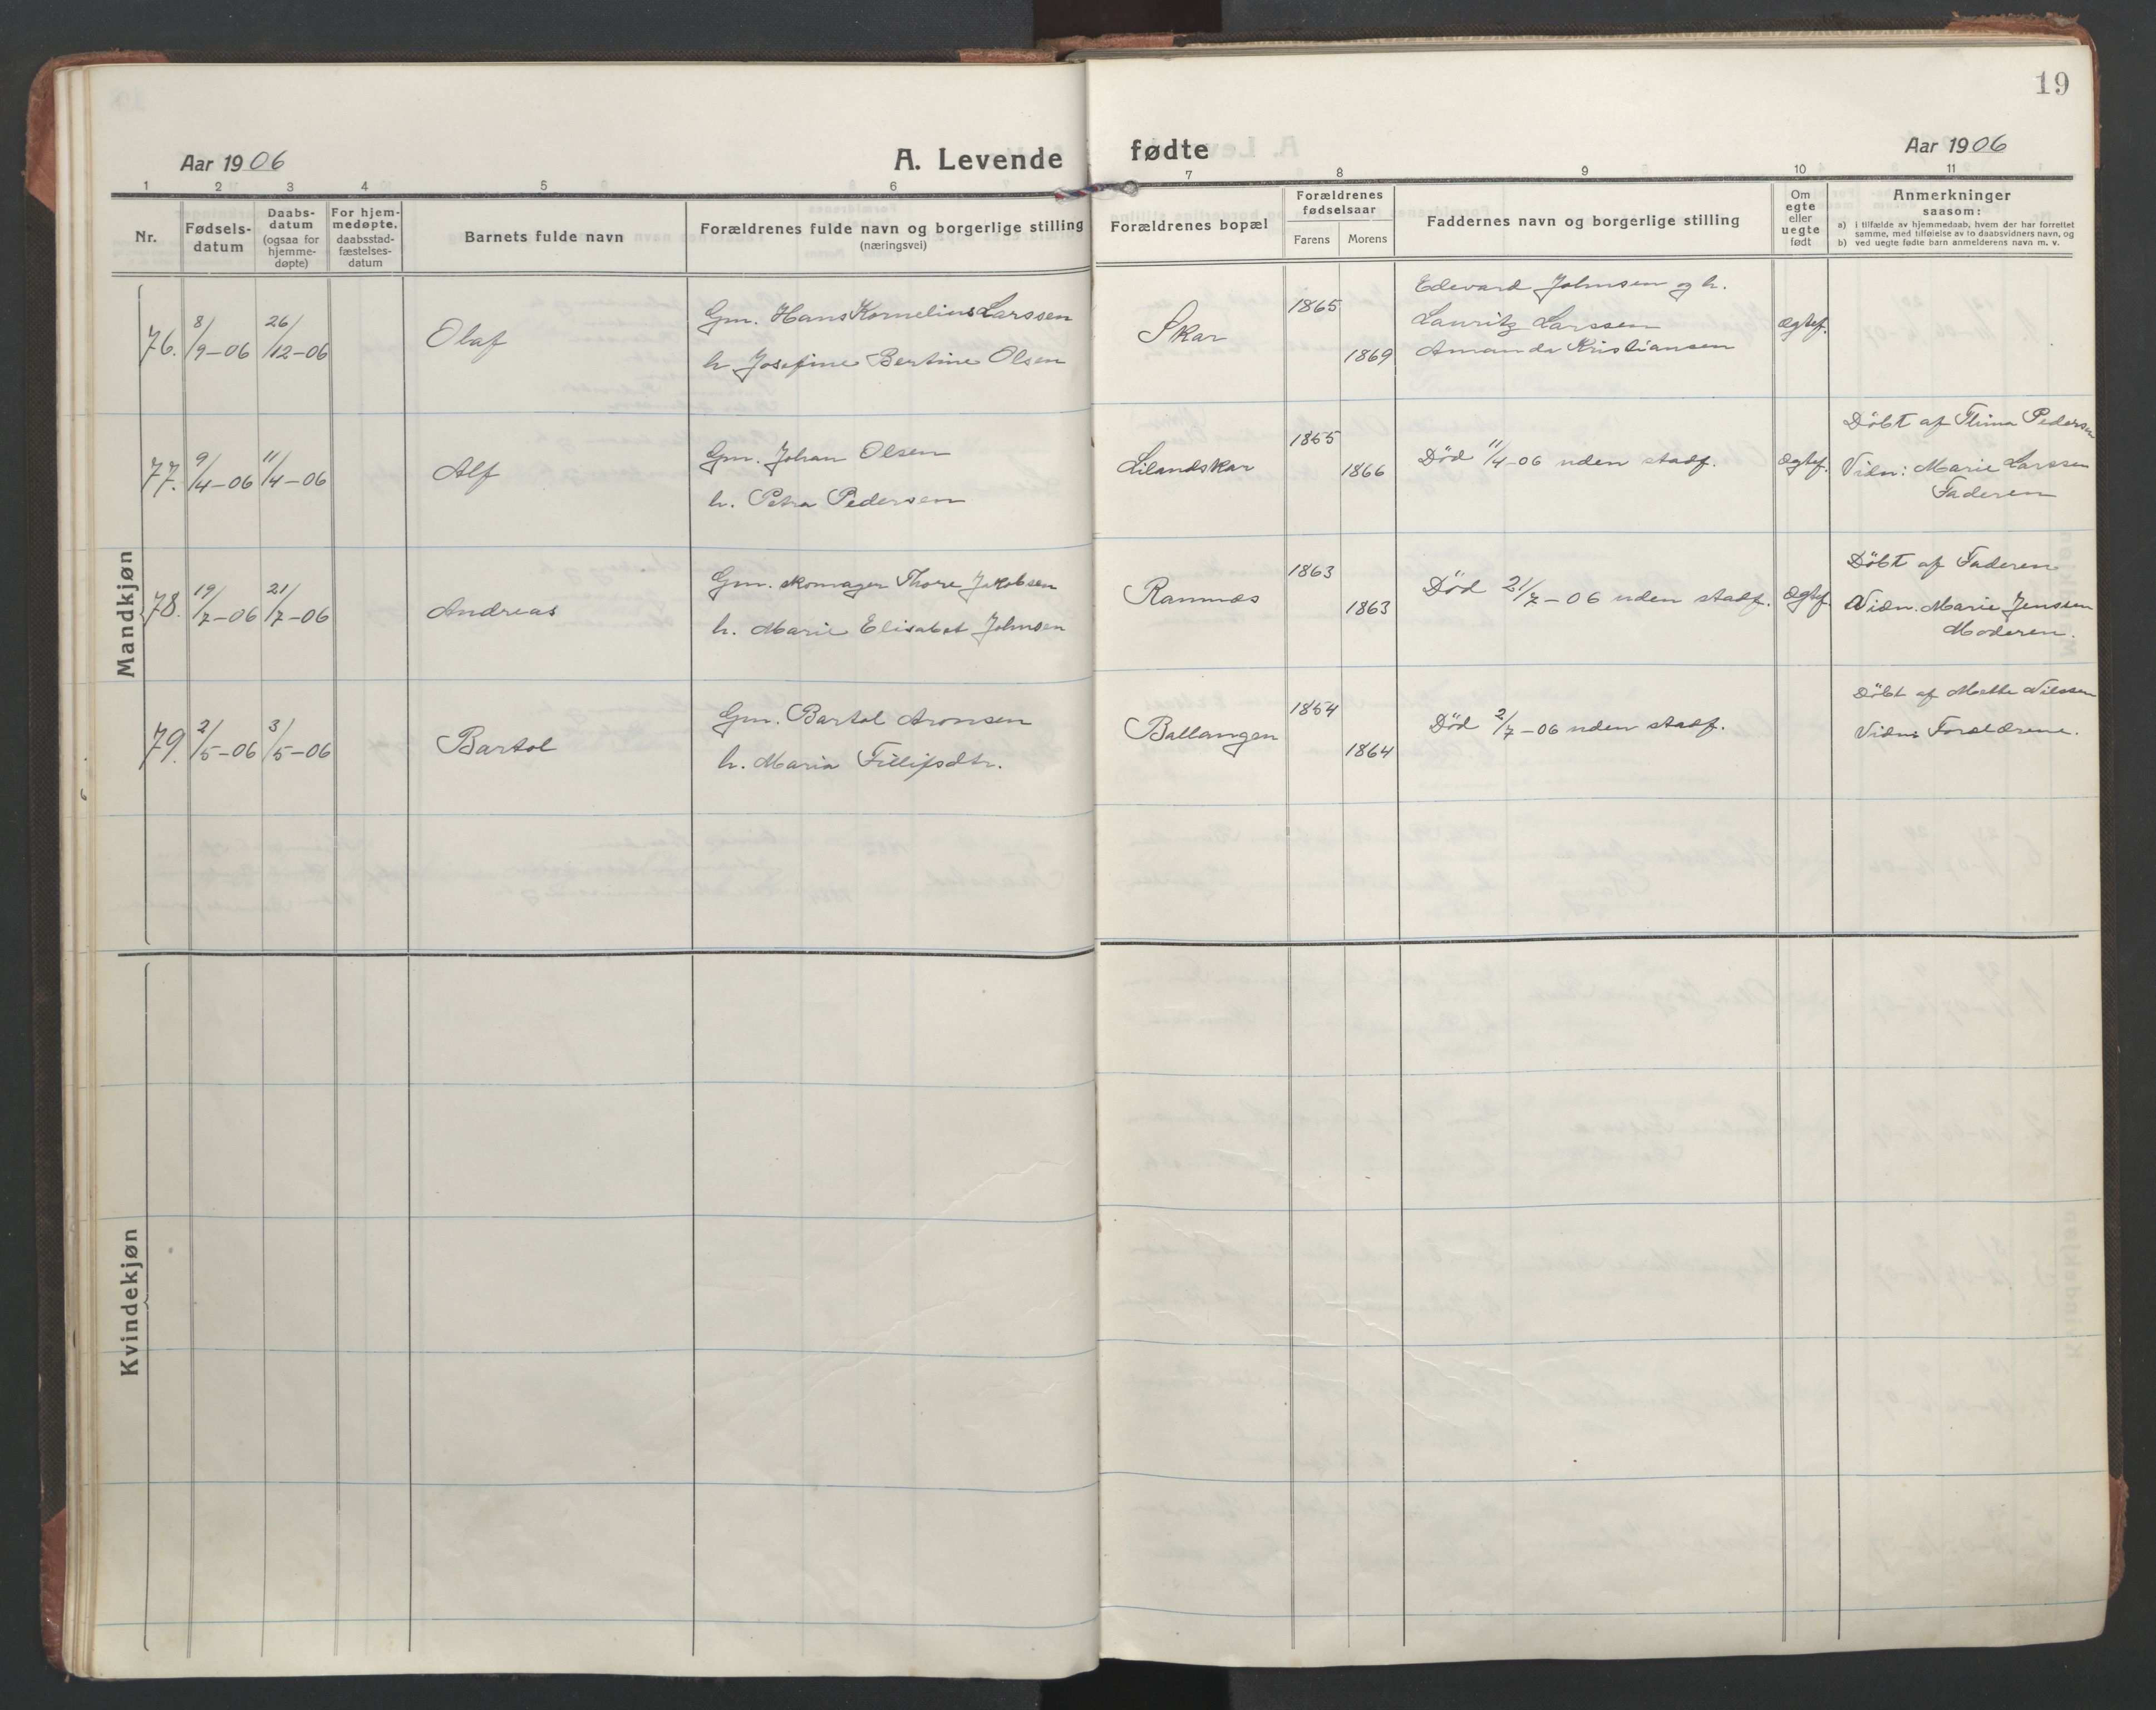 19
Aar 1906
A. Levende fødte
Aar 1906
1 2 3 4 5 6 7 8 9 10 11
Nr.
Fødsels-
datum
Daabs-
datum
(ogsaa for
hjemme-
døpte)
For hjem-
medøpte,
daabsstad-
fæstelses-
datum
Barnets fulde navn
Forældrenes fulde navn og borgerlige stilling
(næringsvei)
Forældrenes bopæl
Forældrenes
fødselsaar
Farens Morens
Faddernes navn og borgerlige stilling
Om
egte
eller
uegte
født
Anmerkninger
saasom:
a) i tilfælde av hjemmedaab, hvem der har forrettet
samme, med tilføielse av to daabsvidners navn, og
b) ved uegte fødte barn anmelderens navn m. v.
Mandkjøn
76. 8/9-06 26/12-06
Olaf
Gm. Hans Kornelius Larssen
h. Josefine Bertine Olsen
Skar
1865
1869
Edevard Johnsen og h.
Lauritz Larssen
Amanda Kristiansen
ægtef.
77. 9/4-06 11/4-06
Alf
Gm. Johan Olsen
h. Petra Pedersen
Lilandskar
1865
1866
Død 11/4-06 uden stadf.
ægtef.
Döbt af Pedersen
Vidn: Marie Larssen
Faderen
78. 19/7-06 21/7-06
Andreas
Gm. skomager Thore Jakobsen
h. Marie Elisabet Johnsen
Rannæs
1863
1863
Død 21/7-06 uden stadf.
ægtef.
Döbt af Faderen
Vidn. Marie Jenssen
Moderen.
79. 2/5-06 3/5-06
Bartol
Gm. Bartol Aronsen
h. Maria Fillipsdtr.
Ballangen
1854
1864
Død 2/7-06 uden stadf.
Döbt af Mette Nilssen
Vidn: Forældrene.
Kvindekjøn